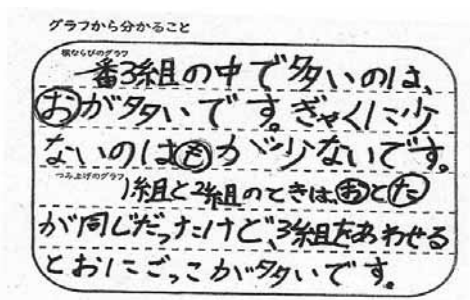 グラフから分かること
横ならびのグラフ
一番3組の中で多いのは、
おが多いです。ぎゃくに少
ないのはもが少ないです。
つみ上げのグラフ
1組と2組のときは、おとた
が同じだったけど、3組をあわせる
とおにごっこが多いです。